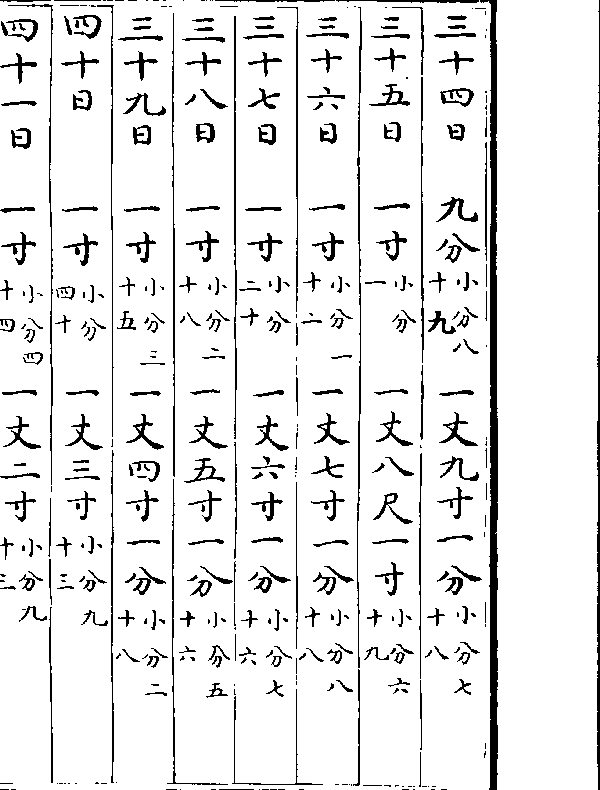 三十四日 九分小分八十九 一丈九寸一分小分七十八
三十五日 一寸小分一 一丈八尺一寸小分六十九
三十六日 一寸小分一十二 一丈七寸一分小分八十八
三十七日 一寸小分二十 一丈六寸一分小分七十六
三十八日 一寸小分二十八 一丈五寸一分小分五十六
三十九日 一寸小分三十五 一丈四寸一分小分二十八
四十日 一寸小分四十 一丈三寸小分九十三
四十一日 一寸小分四十四 一丈二寸小分九十三